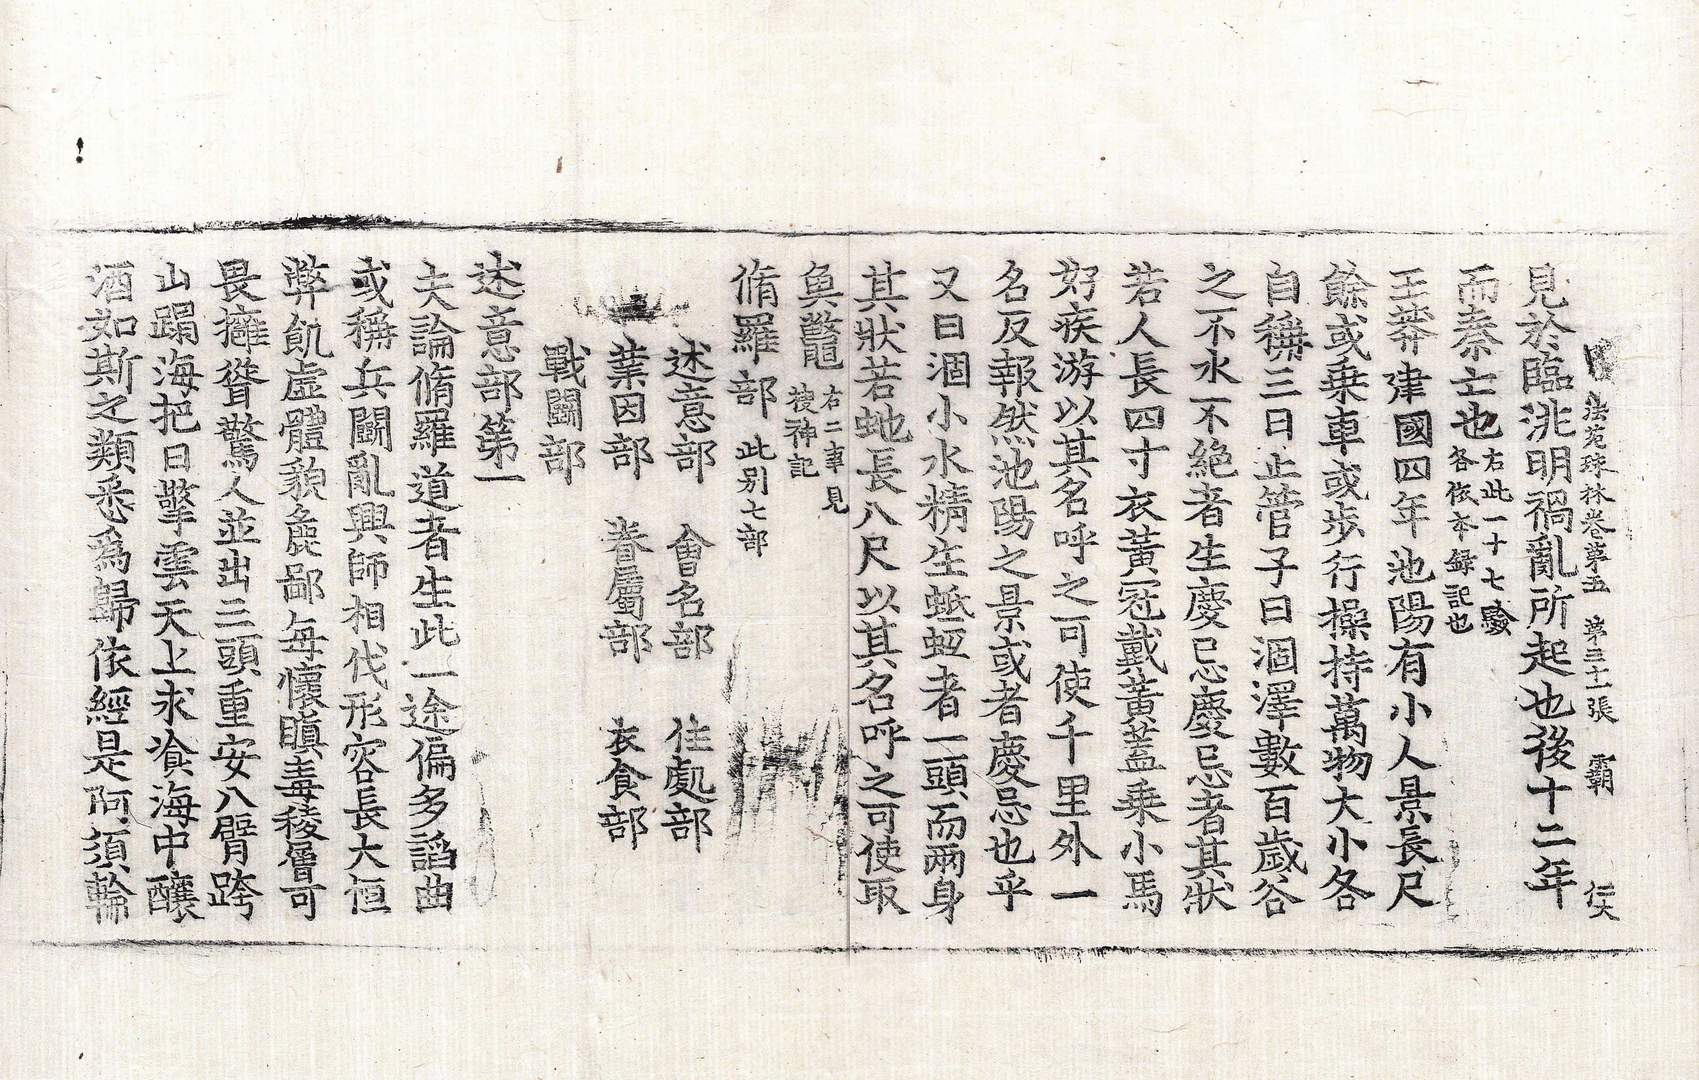 法苑珠林卷第五 第三十一張 霸 仁大
見於臨洮明禍亂所起也後十二年
而秦亡也右此一十七驗各依本錄記也
王莽建國四年池陽有小人景長尺
餘或乗車或步行操持萬物大小各
自稱三日止管子曰涸澤數百歲谷
之不水不絕者生慶忌慶忌者其狀
若人長四寸衣黃冠戴黃蓋乗小馬
好疾游以其名呼之可使千里外一
名反報然池陽之景或者慶忌也乎
又曰涸小水精生蚳蚳者一頭而兩身
其狀若虵長八尺以其名呼之可使取
魚鼈右二事見搜神記
脩羅部此别七部
述意部 會名部 住處部
業因部 眷屬部 衣食部
戰鬪部
述意部第一
夫論脩羅道者生此一途偏多謟曲
或稱兵鬪亂興師相伐形容長大恒
弊飢虛體貌麁鄙每懷瞋毒稜層可
畏擁聳驚人並出三頭重安八臂跨
山蹋海把日擎雲天上求飡海中釀
酒如斯之類悉爲歸依經是阿須輪